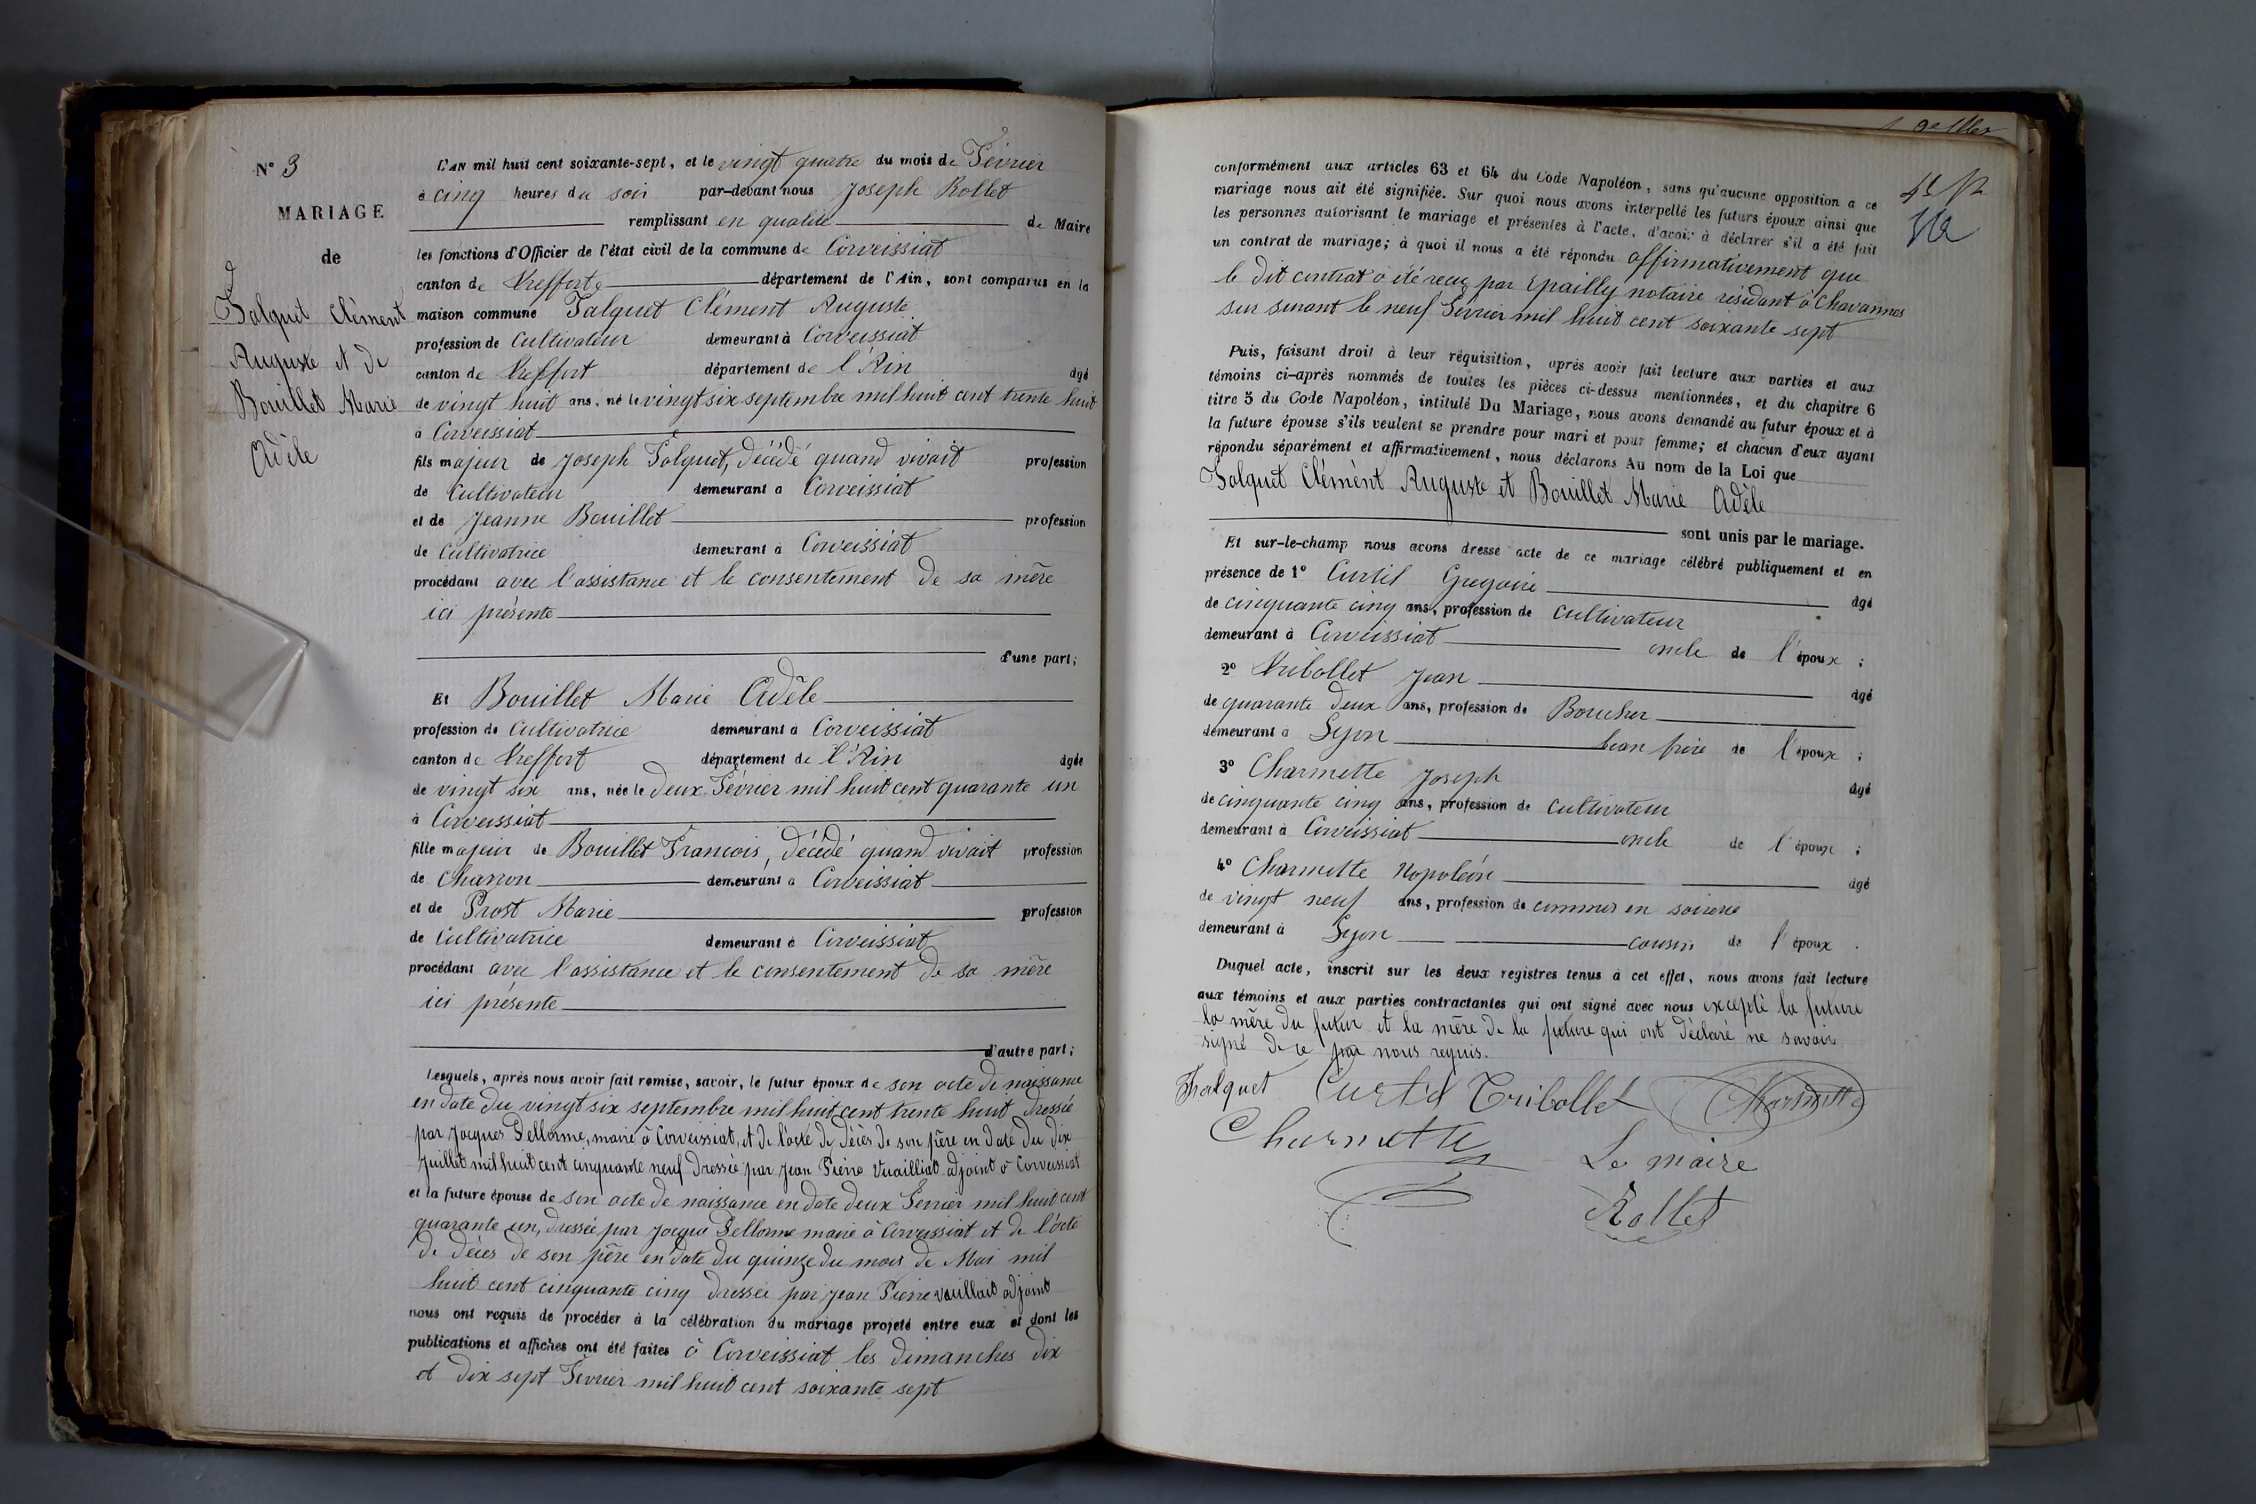 N° 3
MARIAGE
de
Falquet Clément
Auguste et de
Bouillet Marie
Adèle
L'AN mil huit cent soixante-sept, et le vingt quatre du mois de Février
à cinq heures du soir par-devant nous Joseph Rollet
remplissant en qualité de Maire
les fonctions d'Officier de l'état civil de la commune de Corveissiat
canton de Treffort département de l'Ain, sont comparus en la
maison commune Falquet Clément Auguste
profession de Cultivateur demeurant à Corveissiat
canton de Treffort département de l'Ain âgé
de vingt huit ans, né le vingt six septembre mil huit cent trente huit
à Corveissiat
fils majeur de Joseph Falquet, décédé quand vivait profession
de Cultivateur demeurant à Corveissiat
et de Jeanne Bouillet profession
de Cultivatrice demeurant à Corveissiat
procédant avec l'assistance et le consentement de sa mère
ici présente
d'une part;
Et Bouillet Marie Adèle
profession de Cultivatrice demeurant à Corveissiat
canton de Treffort département de l'Ain âgée
de vingt six ans, née le deux Février mil huit cent quarante un
à Corveissiat
fille majeur de Bouillet Francois, décédé quand vivait profession
de Charron demeurant à Corveissiat
et de Prost Marie profession
de Cultivatrice demeurant à Corveissiat
procédant avec l'assistance et le consentement de sa mère
ici présente
d'autre part;
Lesquels, après nous avoir fait remise, savoir, le futur époux de son acte de naissance
en date du vingt six septembre mil huit cent trente huit dressée
par Jacques Pellorme, maire à Corveissiat, et de l'acte de décès de son père en date du dix
Juillet mil huit cent cinquante neuf dressée par Jean Pierre Vuailliat adjoint à Corveissiat
et la future épouse de son acte de naissance en date deux Fevrier mil huit cent
quarante un, dressée par Jacque Pellorme maire à Corveissiat et de l'acte
de décès de son père en date du quinze du mois de Mai mil
huit cent cinquante cinq dressée par Jean Pierre Vuaillait adjoint
nous ont requis de procéder à la célébration du mariage projeté entre eux et dont les
publications et affiches ont été faites à Corveissiat les dimanches dix
et dix sept Février mil huit cent soixante sept
conformément aux articles 63 et 64 du Code Napoléon, sans qu'aucune opposition a ce
mariage nous ait été signifiée. Sur quoi nous avons interpellé les futurs époux ainsi que
les personnes autorisant le mariage et présentes à l'acte, d'avoir à déclarer s'il a été fait
un contrat de mariage; à quoi il nous a été répondu affirmativement que
le dit contrat a été recu par Epailly notaire résidant à Chavannes
sur surant le neuf Février mil huit cent soixante sept
Puis, faisant droit à leur réquisition, après avoir fait lecture aux parties et aux
témoins ci-après nommés de toutes les pièces ci-dessus mentionnées, et du chapitre 6
titre 5 du Code Napoléon, intitulé Du Mariage, nous avons demandé au futur époux et à
la future épouse s'ils veulent se prendre pour mari et pour femme; et chacun d'eux ayant
répondu séparément et affirmativement, nous déclarons Au nom de la Loi que
Falquet Clément Auguste et Bouillet Marie Adèle
sont unis par le mariage.
Et sur-le-champ nous avons dressé acte de ce mariage célébré publiquement et en
présence de 1° Curtil Gregoire âgé
de cinquante cinq ans, profession de cultivateur
demeurant à Corveissiat oncle de l'époux;
2° Tribollet Jean âgé
de quarante deux ans, profession de Boucher
demeurant à Lyon beau frère de l'époux;
3° Charmette Joseph âgé
de cinquante cinq ans, profession de cultivateur
demeurant à Corveissiat oncle de l'époux;
4° Charmette Napoléon âgé
de vingt neuf ans, profession de commis en soierie
demeurant à Lyon cousin de l'époux.
Duquel acte, inscrit sur les deux registres tenus à cet effet, nous avons fait lecture
aux témoins et aux parties contractantes qui ont signé avec nous excepté la future
la mère du futur et la mère de la future qui ont déclaré ne savoir
signé de ce par nous requis.
Falquet Curtil Tribollet Charmette
Charmette
Le maire
Rollet